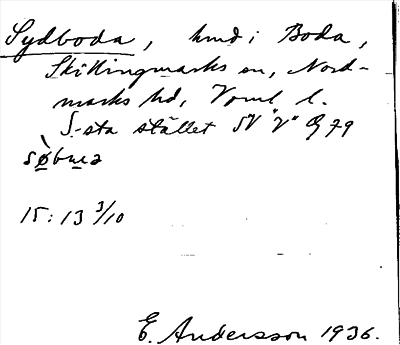 Sydboda, hmd i Boda,
Skillingmarks sn, Nord-
marks hd, Vrml l.
S.-sta stället SV "V" Ög 79
sø̀bɯɔ
15:13 3/10
E. Andersson 1936.